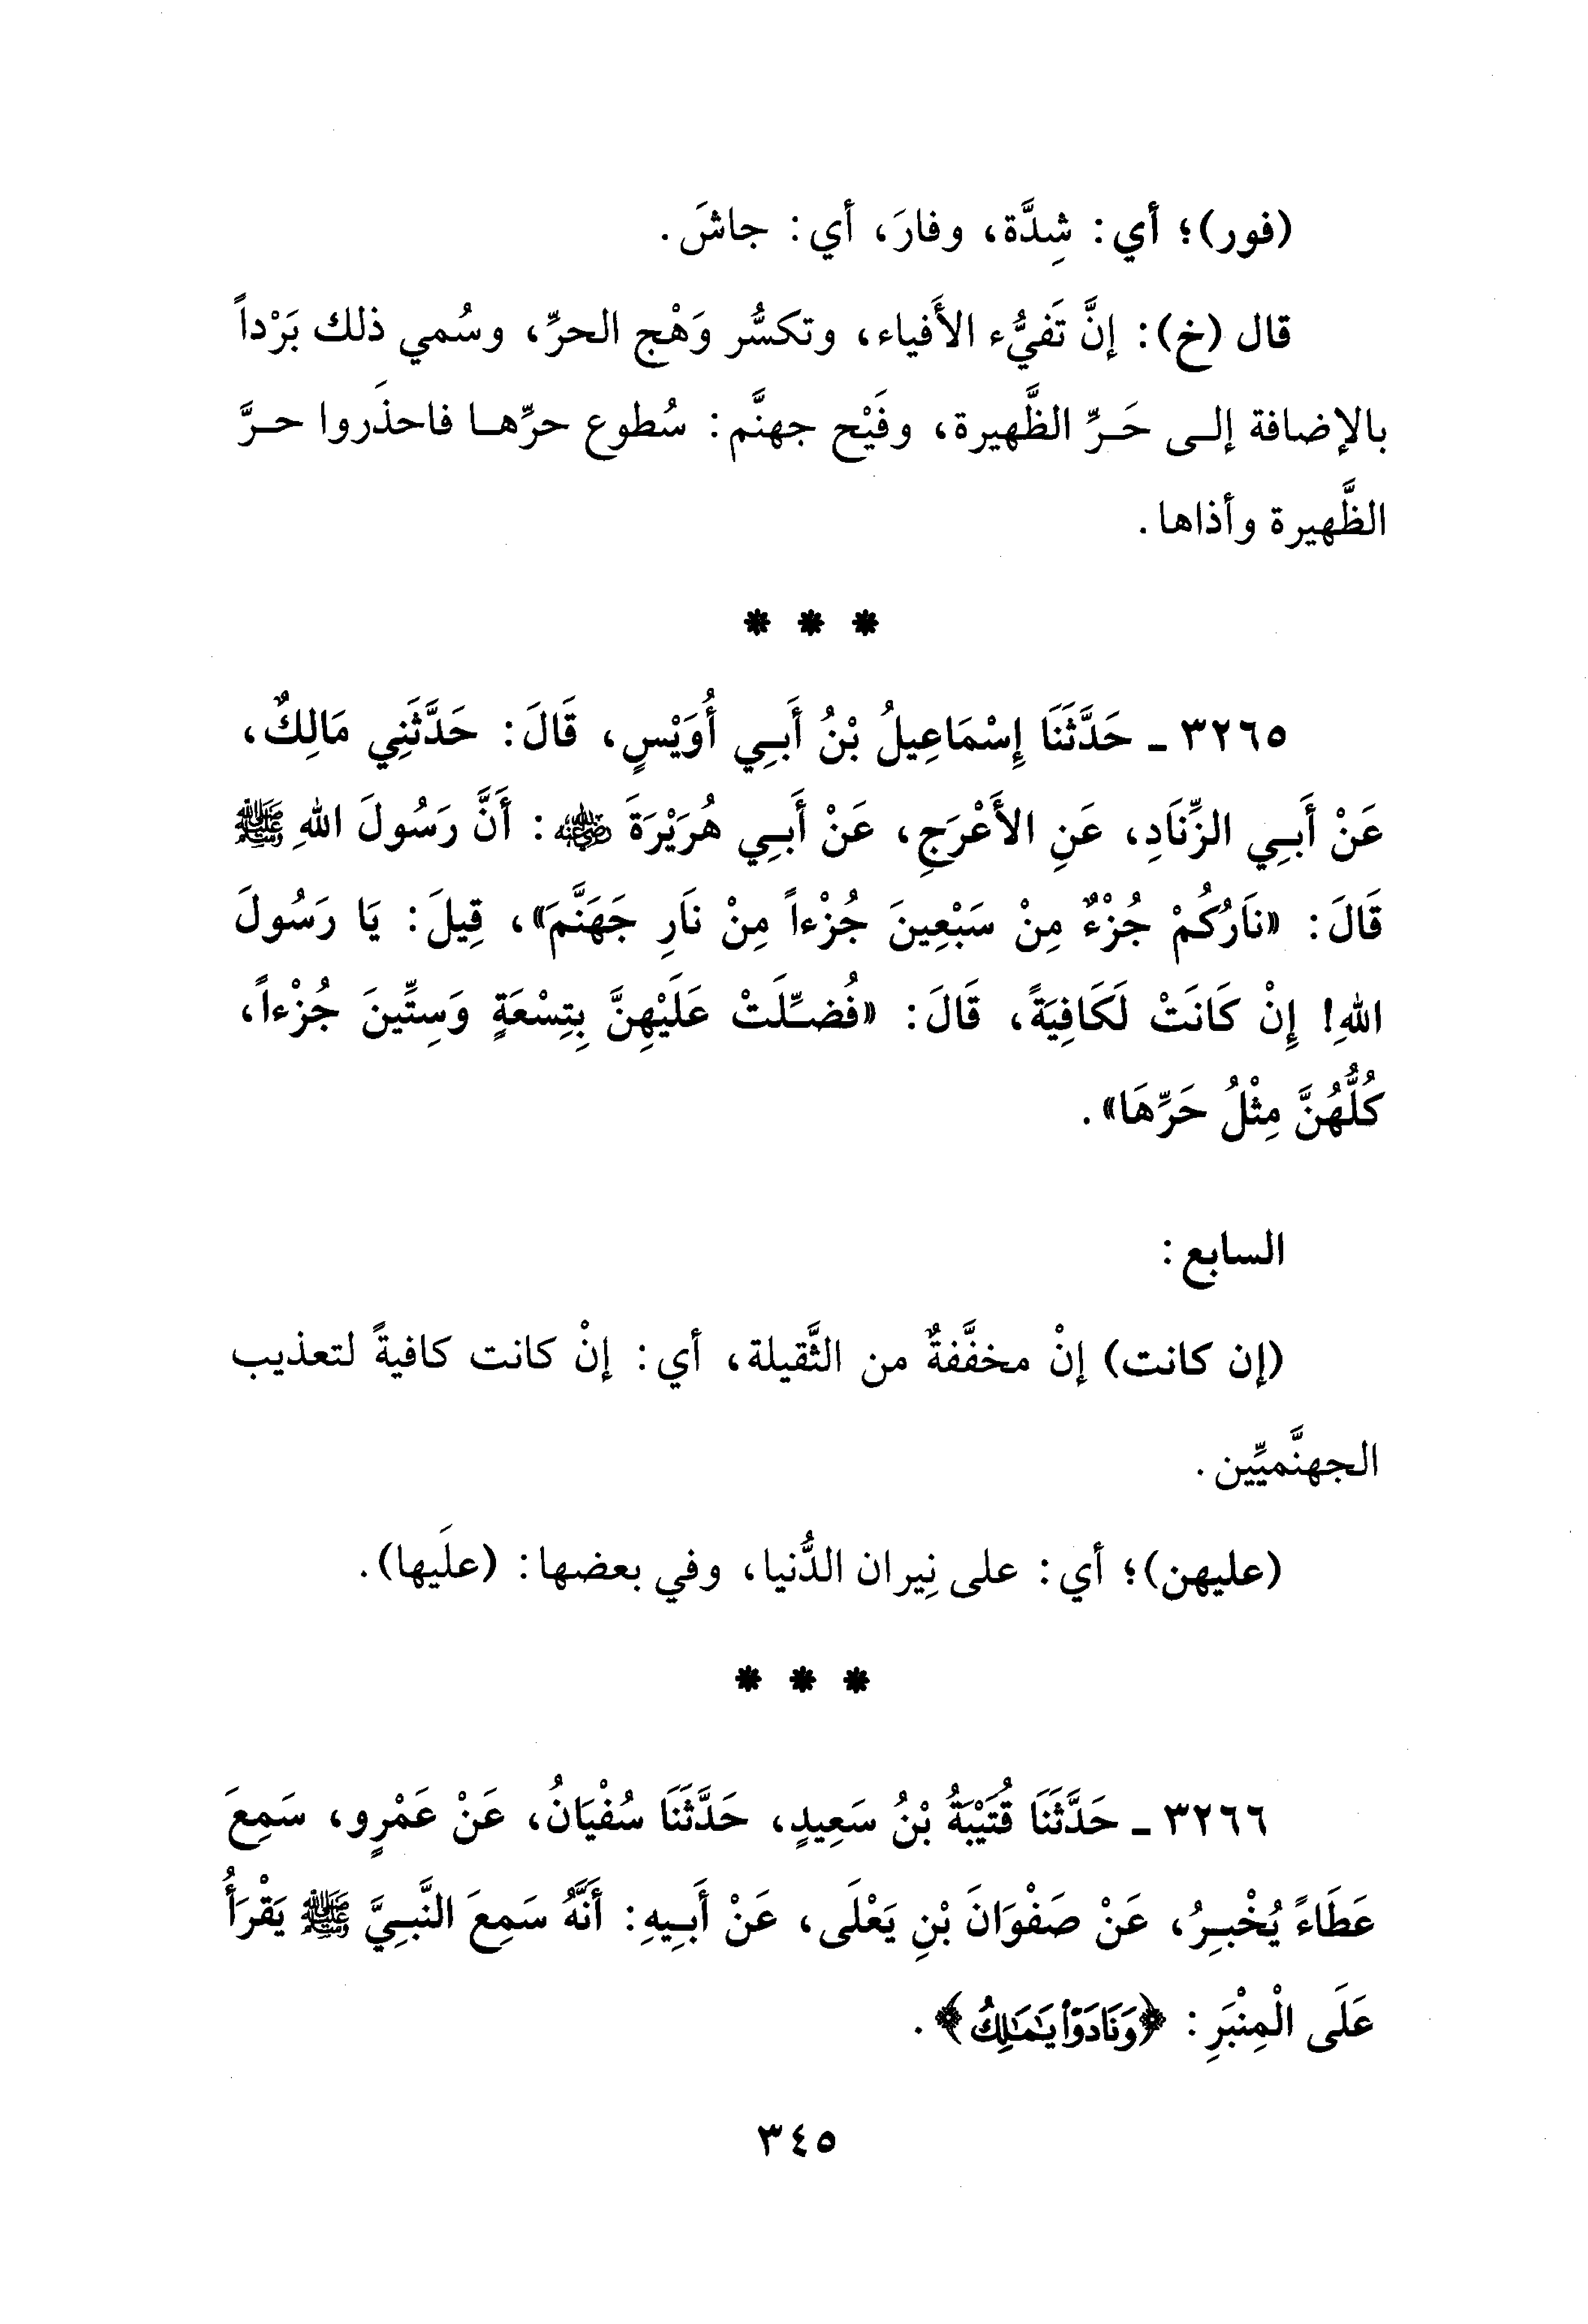 (فور)؛ أي: شِدَّة، وفارَ، أي: جاشَ.
قال (خ): إنَّ تَفيُّء الأَفياء، وتكسُّر وَهْج الحرِّ، وسُمي ذلك بَرْداً
بالإضافة إلى حَرِّ الظَّهيرة، وفَيْح جهنَّم: سُطوع حرِّها فاحذَروا حرَّ
الظَّهيرة وأذاها.
* * *
٣٢٦٥ ـ حَدَّثَنَا إِسْمَاعِيلُ بْنُ أَبِي أُوَيْسٍ، قَالَ: حَدَّثَنِي مَالِكٌ،
عَنْ أَبِي الزِّنَادِ، عَنِ الأَعْرَجِ، عَنْ أَبِي هُرَيْرَةَ رضي الله عنه: أَنَّ رَسُولَ اللهِ ﷺ
قَالَ: «نَارُكُمْ جُزْءٌ مِنْ سَبْعِينَ جُزْءاً مِنْ نَارِ جَهَنَّمَ»، قِيلَ: يَا رَسُولَ
اللهِ! إِنْ كَانَتْ لَكَافِيَةً، قَالَ: «فُضِّلَتْ عَلَيْهِنَّ بِتِسْعَةٍ وَسِتِّينَ جُزْءاً،
كُلُّهُنَّ مِثْلُ حَرِّهَا».
السابع:
(إن كانت) إنْ مخفَّفةٌ من الثَّقيلة، أي: إنْ كانت كافيةً لتعذيب
الجهنَّميِّين.
(عليهن)؛ أي: على نِيران الدُّنيا، وفي بعضها: (علَيها).
* * *
٣٢٦٦ ـ حَدَّثَنَا قُتَيْبَةُ بْنُ سَعِيدٍ، حَدَّثَنَا سُفْيَانُ، عَنْ عَمْرٍو، سَمِعَ
عَطَاءً يُخْبِرُ، عَنْ صَفْوَانَ بْنِ يَعْلَى، عَنْ أَبِيهِ: أَنَّهُ سَمِعَ النَّبِيَّ ﷺ يَقْرَأُ
عَلَى الْمِنْبَرِ: ﴿وَنَادَوْا۟ يَـٰمَـٰلِكُ﴾.
٣٤٥